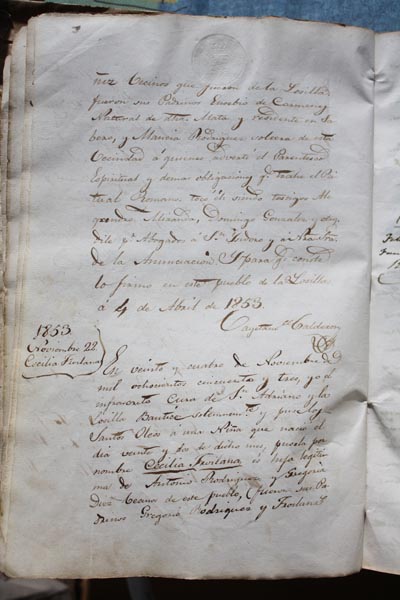 ñez Vecinos que fueron de la Losilla
fueron sus Padrinos Eusebio de
Natural de dha Mata y residente en Sa
bero, y Mancia Rodriguez soltera de esta
Vecindad á quienes advertí el Parentesco
Espiritual y demas obligacion q.e trahe el Ri
tual Romano. toció él siendo testigos
Miranda, Domingo Gonzalez y
dile p.r Abogados á S.n Ysidoro y á Nra Sra
de la Anunciacion. Y para q.e conste
lo firmo en este pueblo de la Losilla
á 4 de Abril de 1853.
Cayetano Calderon
1853
Noviembre 22
Cecilia Froilana
En veinte y cuatro de Noviembre de
mil ochocientos cincuenta y tres, yo el
infrascrito Cura de S.n Adriano y la
Losilla Bauticé solemnem.te y puse los
Santos Oleos á una Niña que nació el
dia veinte y dos de dicho mes, pusela por
nombre Cecilia Froilana es hija legiti
ma de Antonio Rodriguez y Gregoria
Diez Vecinos de este pueblo, fueron sus Pa
drinos Gregorio Rodriguez y Froilana